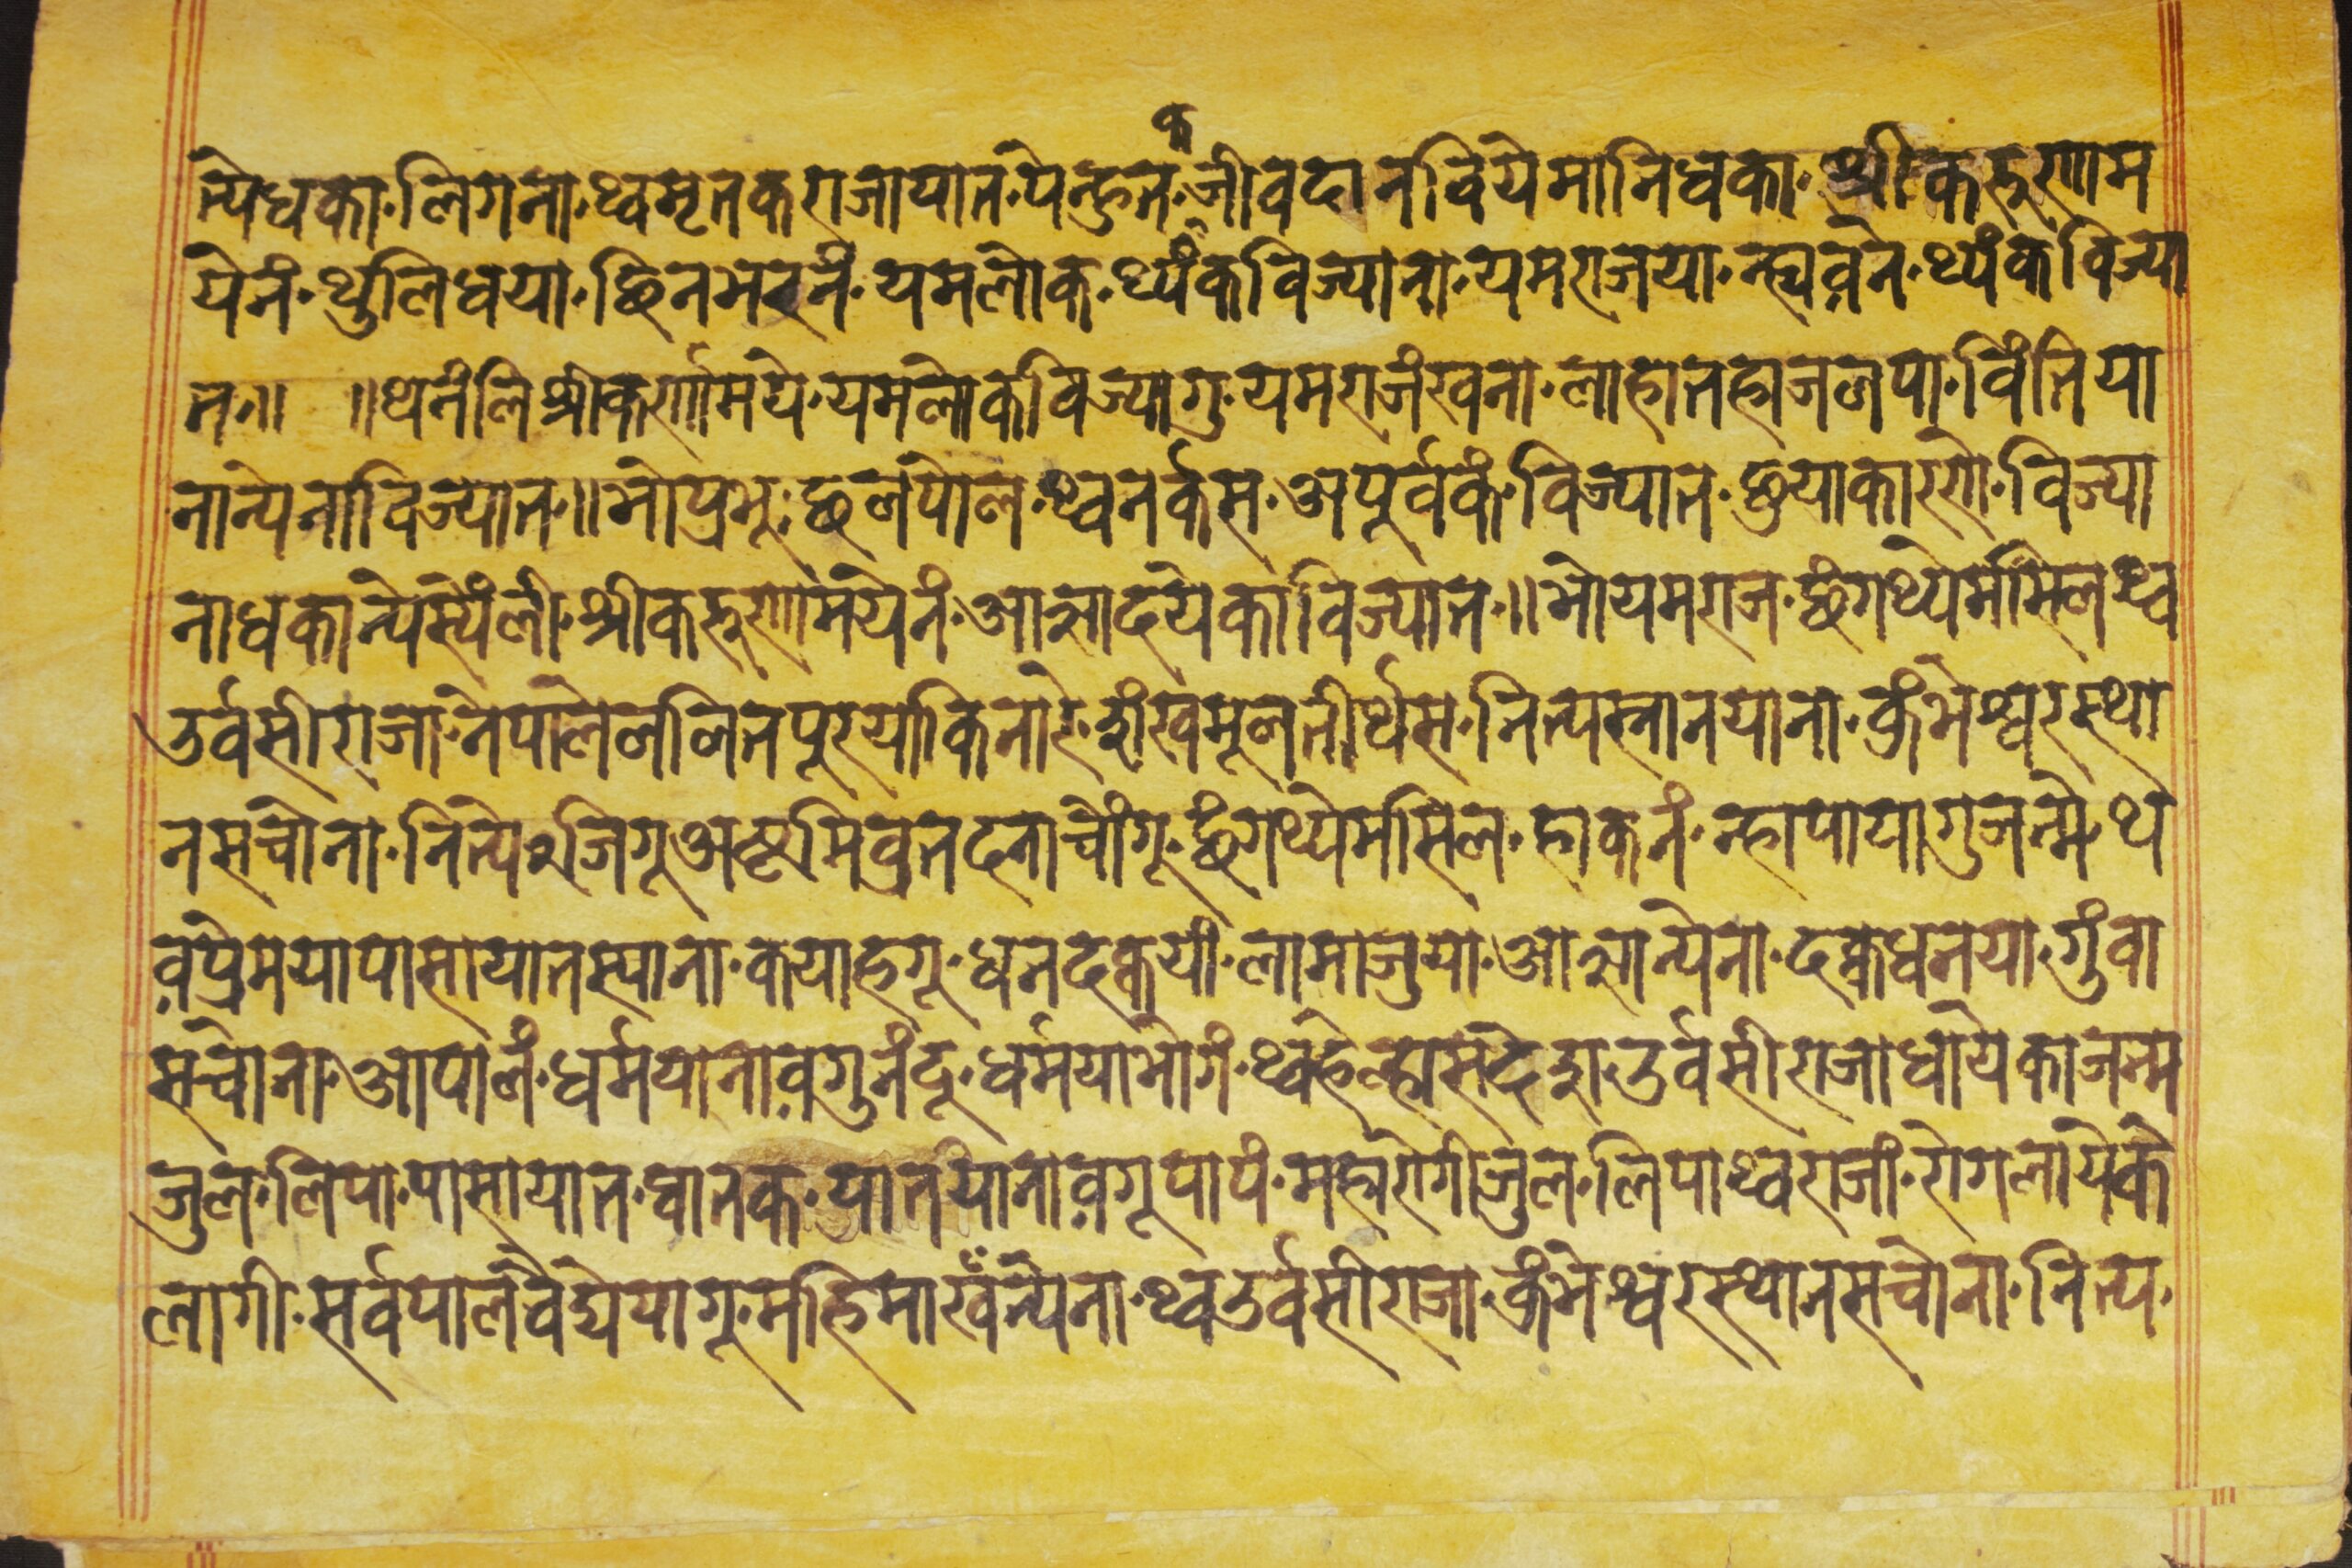 न्येधका·लिगना·थ्वमृतकराजायात·पेन्हुत·जीवदानवियेमानिधका·श्रीकरुणाम
येनं·थुलिधया·छिनभरनं·यमलोक·थ्यंकविज्याना·यमराजया·न्ह्यव़ने·थ्यंकविज्या
त·॥ ॥थनंलि श्रीकर्णामये·यमलोकविज्यागु·यमराजंखना·लाहातहाजलपा·विंतिया
नान्येनाविज्यात·॥भोप्रभू·छलपोल·थ्वनर्कस·अपूर्वकं·विज्यात·छुयाकारणे·विज्या
नाधकान्येस्येंली·श्रीकरुणामयेनं·आज्ञादयेकाविज्यात·॥भोयमराज·छंगथ्येमसिलथ्व
उर्वसीराजा·नेपालेललितपूरयाकिनारे·शंखमूलतीर्थस·नित्यस्नानयाना·कुंभेश्वरस्था
नसचोना·नित्ये२जिगूअष्टमिव्रतदनाचोंगू·छंगथ्येमसिल·हाकनं·न्हापायागुजन्मे·थ
व़प्रेमयापासायातस्याना·कयाहगू·धनदक्वयी·लामाजुया·आज्ञान्येना·दक्वधनया·गुंवा
सचोना·आपालं·धर्मयानाव़गुनंदू·धर्मयाभोगं·थ्वहेल्हासदेशा·उर्वसीराजाधायेकाजन्म
जुल·लिपा·पासायात·घातक·यातयानाव़गूपापं·महारोगीजुल·लिपाथ्वराजां·रोगलायेके
लागी·सर्वपालवैद्येयागू·महिमाखँन्येना·थ्वउर्वसीराजा·कुंभेश्वरस्थानसचोना·नित्य·